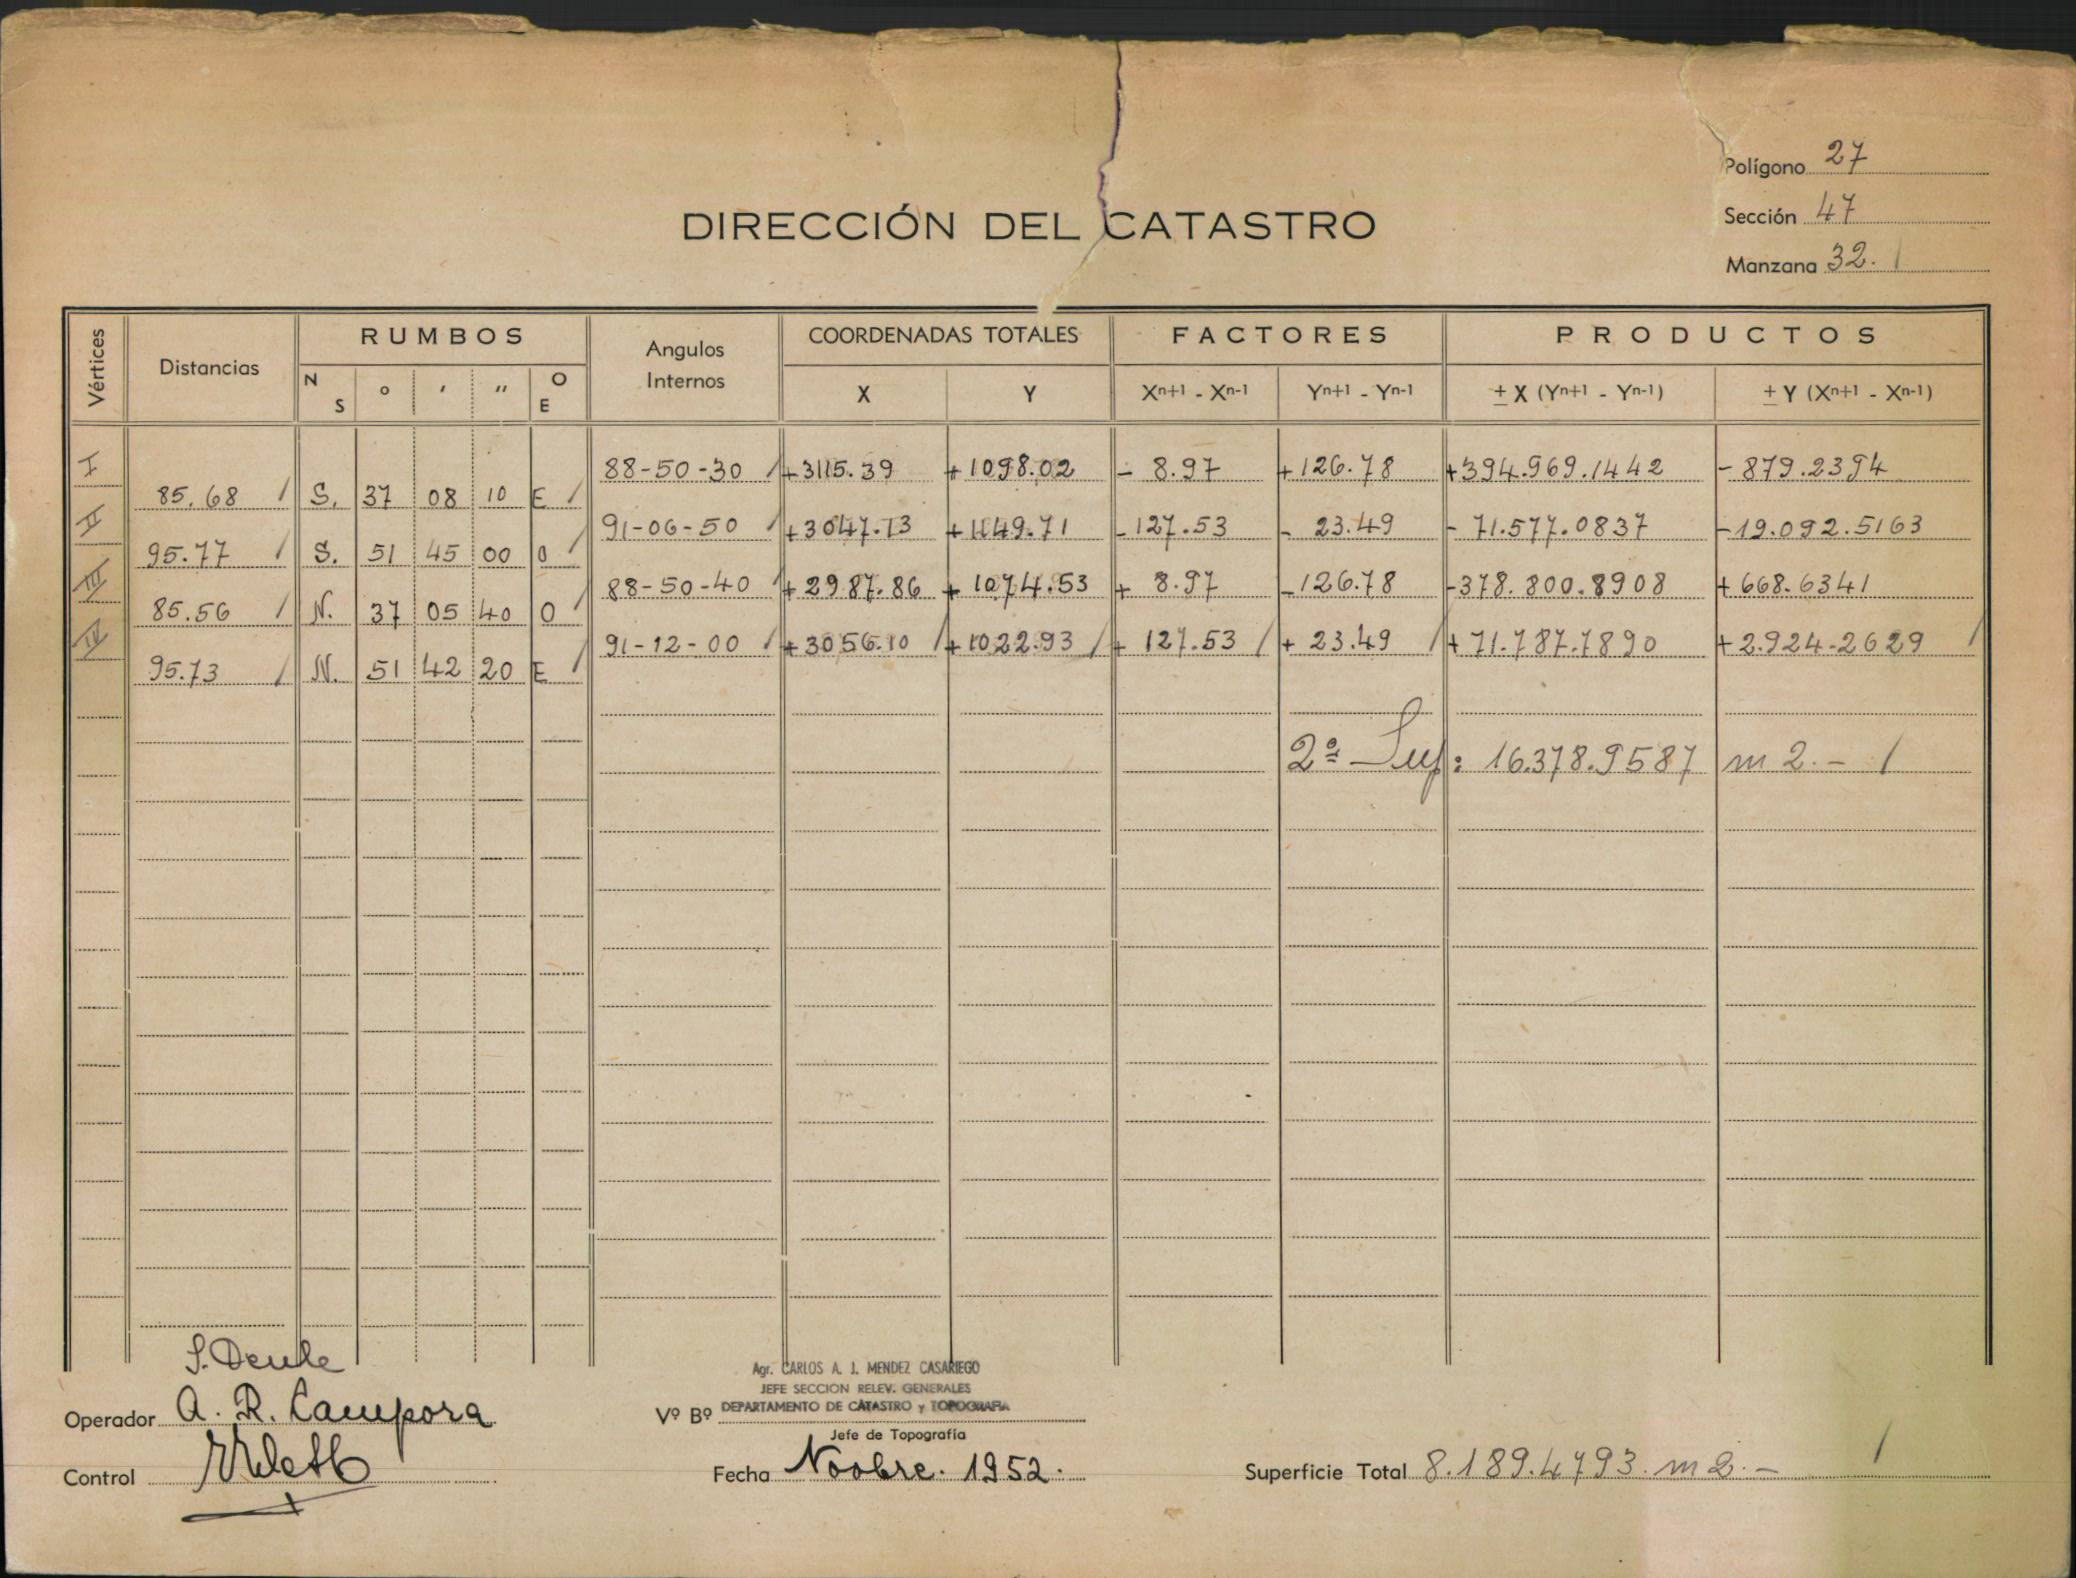 Polígono 27
Sección 47
DIRECCIÓN DEL CATASTRO
Manzana 32.
Vértices Distancias RUMBOS Angulos Internos COORDENADAS TOTALES FACTORES PRODUCTOS
N S ° ′ ″ O E X Y Xn+1 - Xn-1 Yn+1 - Yn-1 ± X (Yn+1 - Yn-1) ± Y (Xn+1 - Xn-1)
I 88-50-30 +3115.39 +1098.02 - 8.97 +126.78 +394.969.1442 -879.2394
85.68 S. 37 08 10 E
II 91-06-50 +3047.13 +1149.71 -127.53 - 23.49 - 71.577.0837 -19.092.5163
95.77 S. 51 45 00 O
III 88-50-40 +2987.86 +1074.53 + 8.97 -126.78 -378.800.8908 +668.6341
85.56 N. 37 05 40 O
IV 91-12-00 +3056.10 +1022.93 + 127.53 + 23.49 +71.787.7890 +2.924.2629
95.73 N. 51 42 20 E
2ª Sup: 16.378.9587 m2.-
Agr. CARLOS A. J. MENDEZ CASARIEGO
JEFE SECCION RELEV. GENERALES
Operador A. R. Campora Vº Bº DEPARTAMENTO DE CATASTRO y TOPOGRAFIA
Jefe de Topografía
Control Fecha Novbre. 1952. Superficie Total 8.189.4793 m2.-